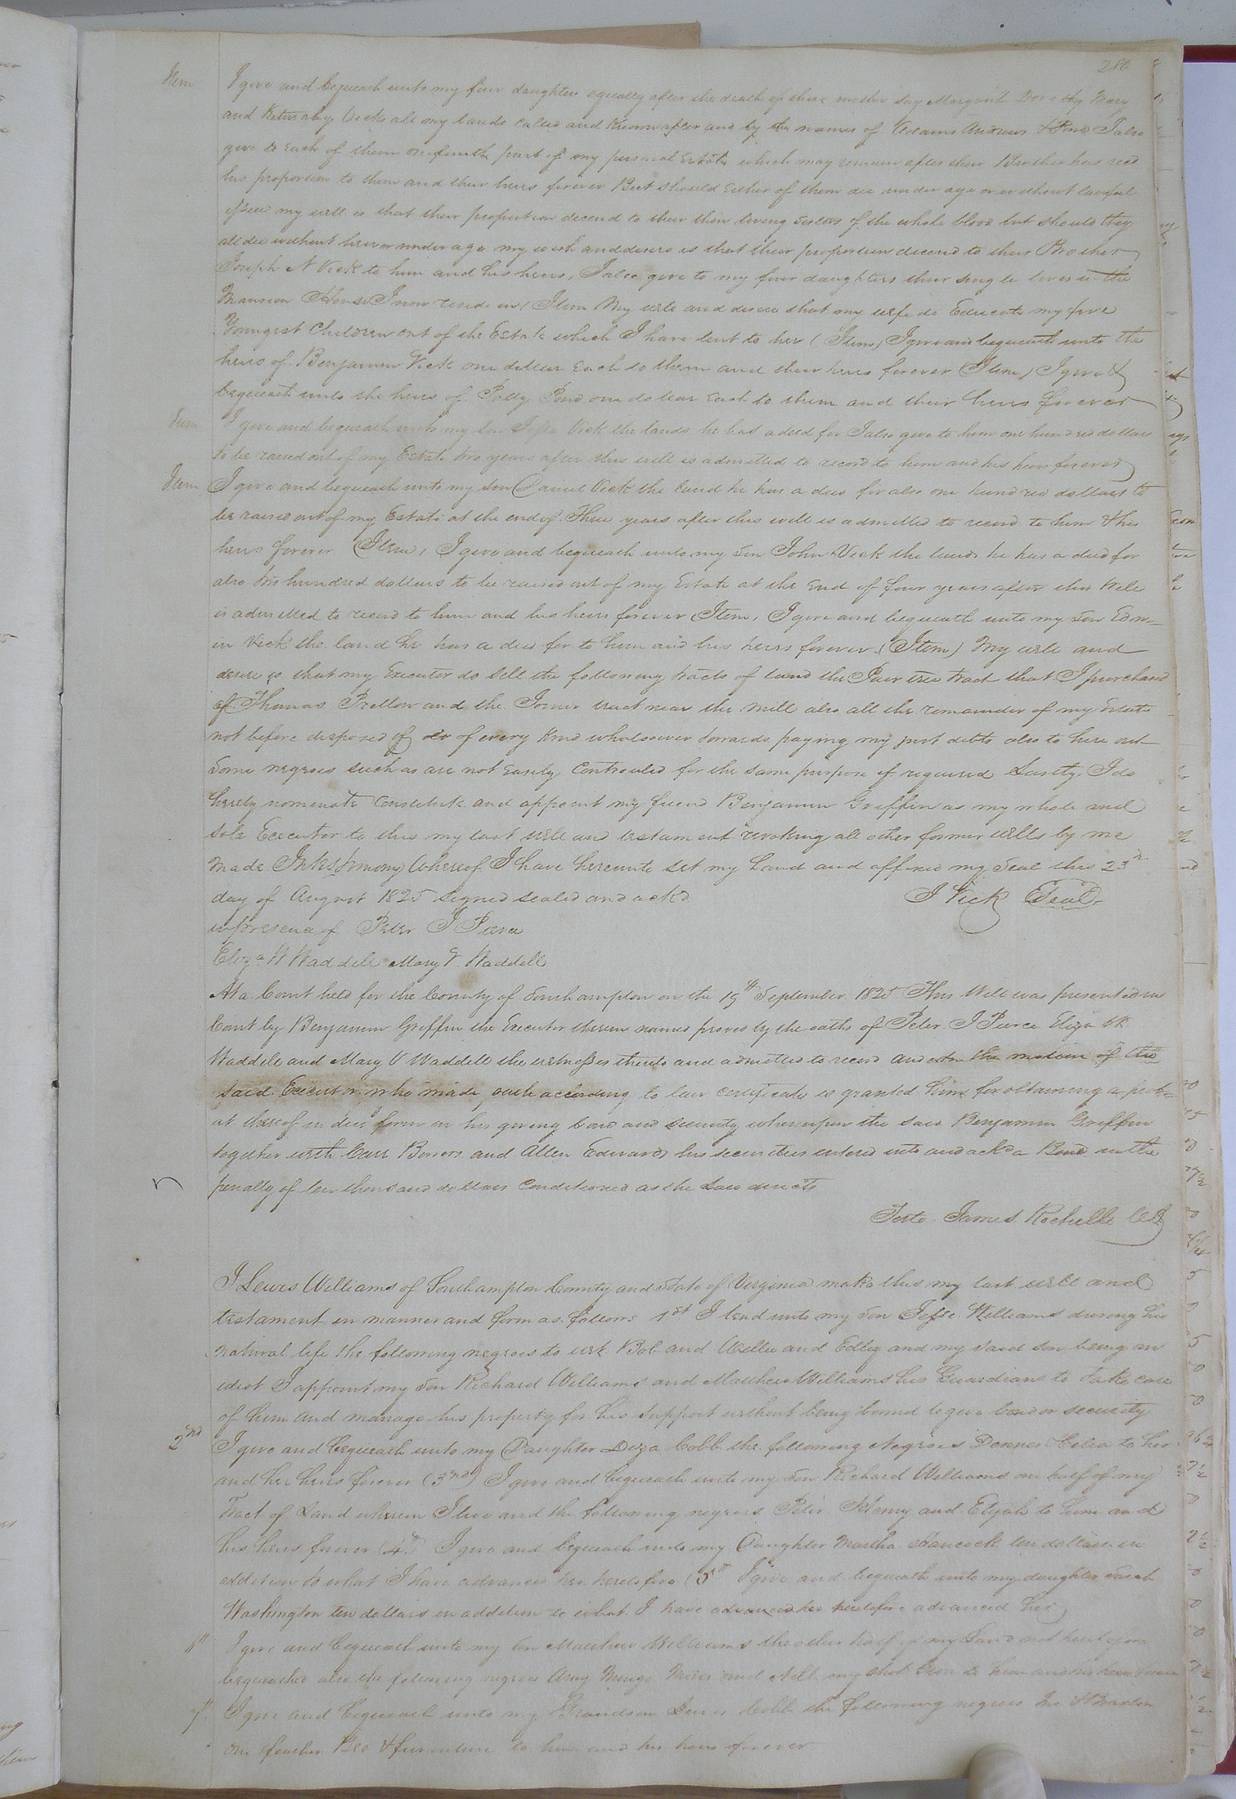 286
Item I give and bequeath unto my four daughters equally after the death of their mother say Margarit Dorothy Mary
and Keturahy Vick all my lands called and known after and by the names of Williams Andrews & I also
give to each of them one fourth part of my personal Estate which may remain after their Brother has red
his proportion to them and their heirs forever But should Either of them die under age or without lawful
issue my will is that their proportion decend to their then living sisters of the whole blood but should they
all die without heirs or under age my wish and desire is that their proportion decend to their Brother
Joseph N Vick to him and his heirs, I also give to my four daughters their single lives in the
Mansion House I now reside in (Item My will and desire that my wife do Educate my five
Youngest Children out of the Estate which I have lent to her (Item) I give and bequeath unto the
heirs of Benjamin Vick one dollar Each to them and their heirs forever (Item) I give &
bequeath unto the heirs of Polly one dollar Each to them and their heirs forever
Item I give and bequeath unto my son Vick the lands he has a deed for I also give to him one hundred dollars
to be raised out of my Estate two years after this will is admitted to record to him and his heirs forever
Item I give and bequeath unto my son Daniel Vick the land he has a deed for also one hundred dollars to
be raised out of my Estate at the end of Three years after this will is admitted to record to him & his
heirs forever (Item, I give and bequeath unto my son John Vick the lands he has a deed for
also two hundred dollars to be raised out of my Estate at the End of four years after this Will
is admitted to record to him and his heirs forever Item, I give and bequeath unto my son Edm-
in Vick the land he has a deed for to him and his heirs forever (Item) My will and
desire is that my Executor do sell the following tracts of land the tree tract that I purchased
of Thomas Pretlow and the tract near the mill also all the remainder of my Estate
not before disposed of of every kind whatsoever towards paying my just debts also to hire out
some negroes such as are not Easily Controuled for the same purpose if required Lastly I do
hereby nominate Constitute and appoint my friend Benjamin Griffin as my whole and
sole Executor to this my last will and testament revoking all other former wills by me
made In testimony Whereof I have hereunto set my hand and affixed my seal this 23rd
day of August 1825 signed sealed and ackd J Vick Seal
in presence of Peter J Pierce
Eliza W Waddell Mary V Waddell
At a Court held for the County of Southampton on the 19th September 1825 This Will was presented in
Court by Benjamin Griffin the Executor therein named proved by the oaths of Peter J Pierce Eliza W
Waddell and Mary V Waddell the witnesses thereto and admitted to record and on the motion of the
said Executor who made oath according to law certificate is granted him for obtaining a prob-
at thereof in due form on his giving bond and security whereupon the said Benjamin Griffin
together with Carr Bowers and Allen Edwards his securities entered into and ackd a Bond in the
penalty of ten thousand dollars conditioned as the Law directs
Teste James Rochelle Clk
I Lewis Williams of Southampton County and State of Virginia make this my last will and
testament in manner and form as follows 1st I lend unto my son Jesse Williams during his
natural life the following negroes to wit Bob and Willie and Edley and my said son being an
idiot I appoint my son Richard Williams and Matthew Williams his Guardians to take care
of him and manage his property for his support without being bound to give bond or security
2nd I give and bequeath unto my Daughter Diza Cobb the following Negroes Donner Celia to her
and her heirs forever (3rd) I give and bequeath unto my son Richard Williams one half of my
Tract of Land wherein I live and the following negroes Peter Henry and Elijah to him and
his heirs forever (4th) I give and bequeath unto my Daughter Martha Hancock ten dollars in
addition to what I have advanced her heretofore (5th I give and bequeath unto my daughter Sarah
Washington ten dollars in addition to what I have advanced her heretofore advanced her
6th I give and bequeath unto my son Matthew Williams the other half of my land not heretofore
bequeathed also the following negroes Amy Mingo and my to him and his heirs forever
7th I give and bequeath unto my Grandson Lewis Cobb the following negroes &
one feather Bed & furniture to him and his heirs forever